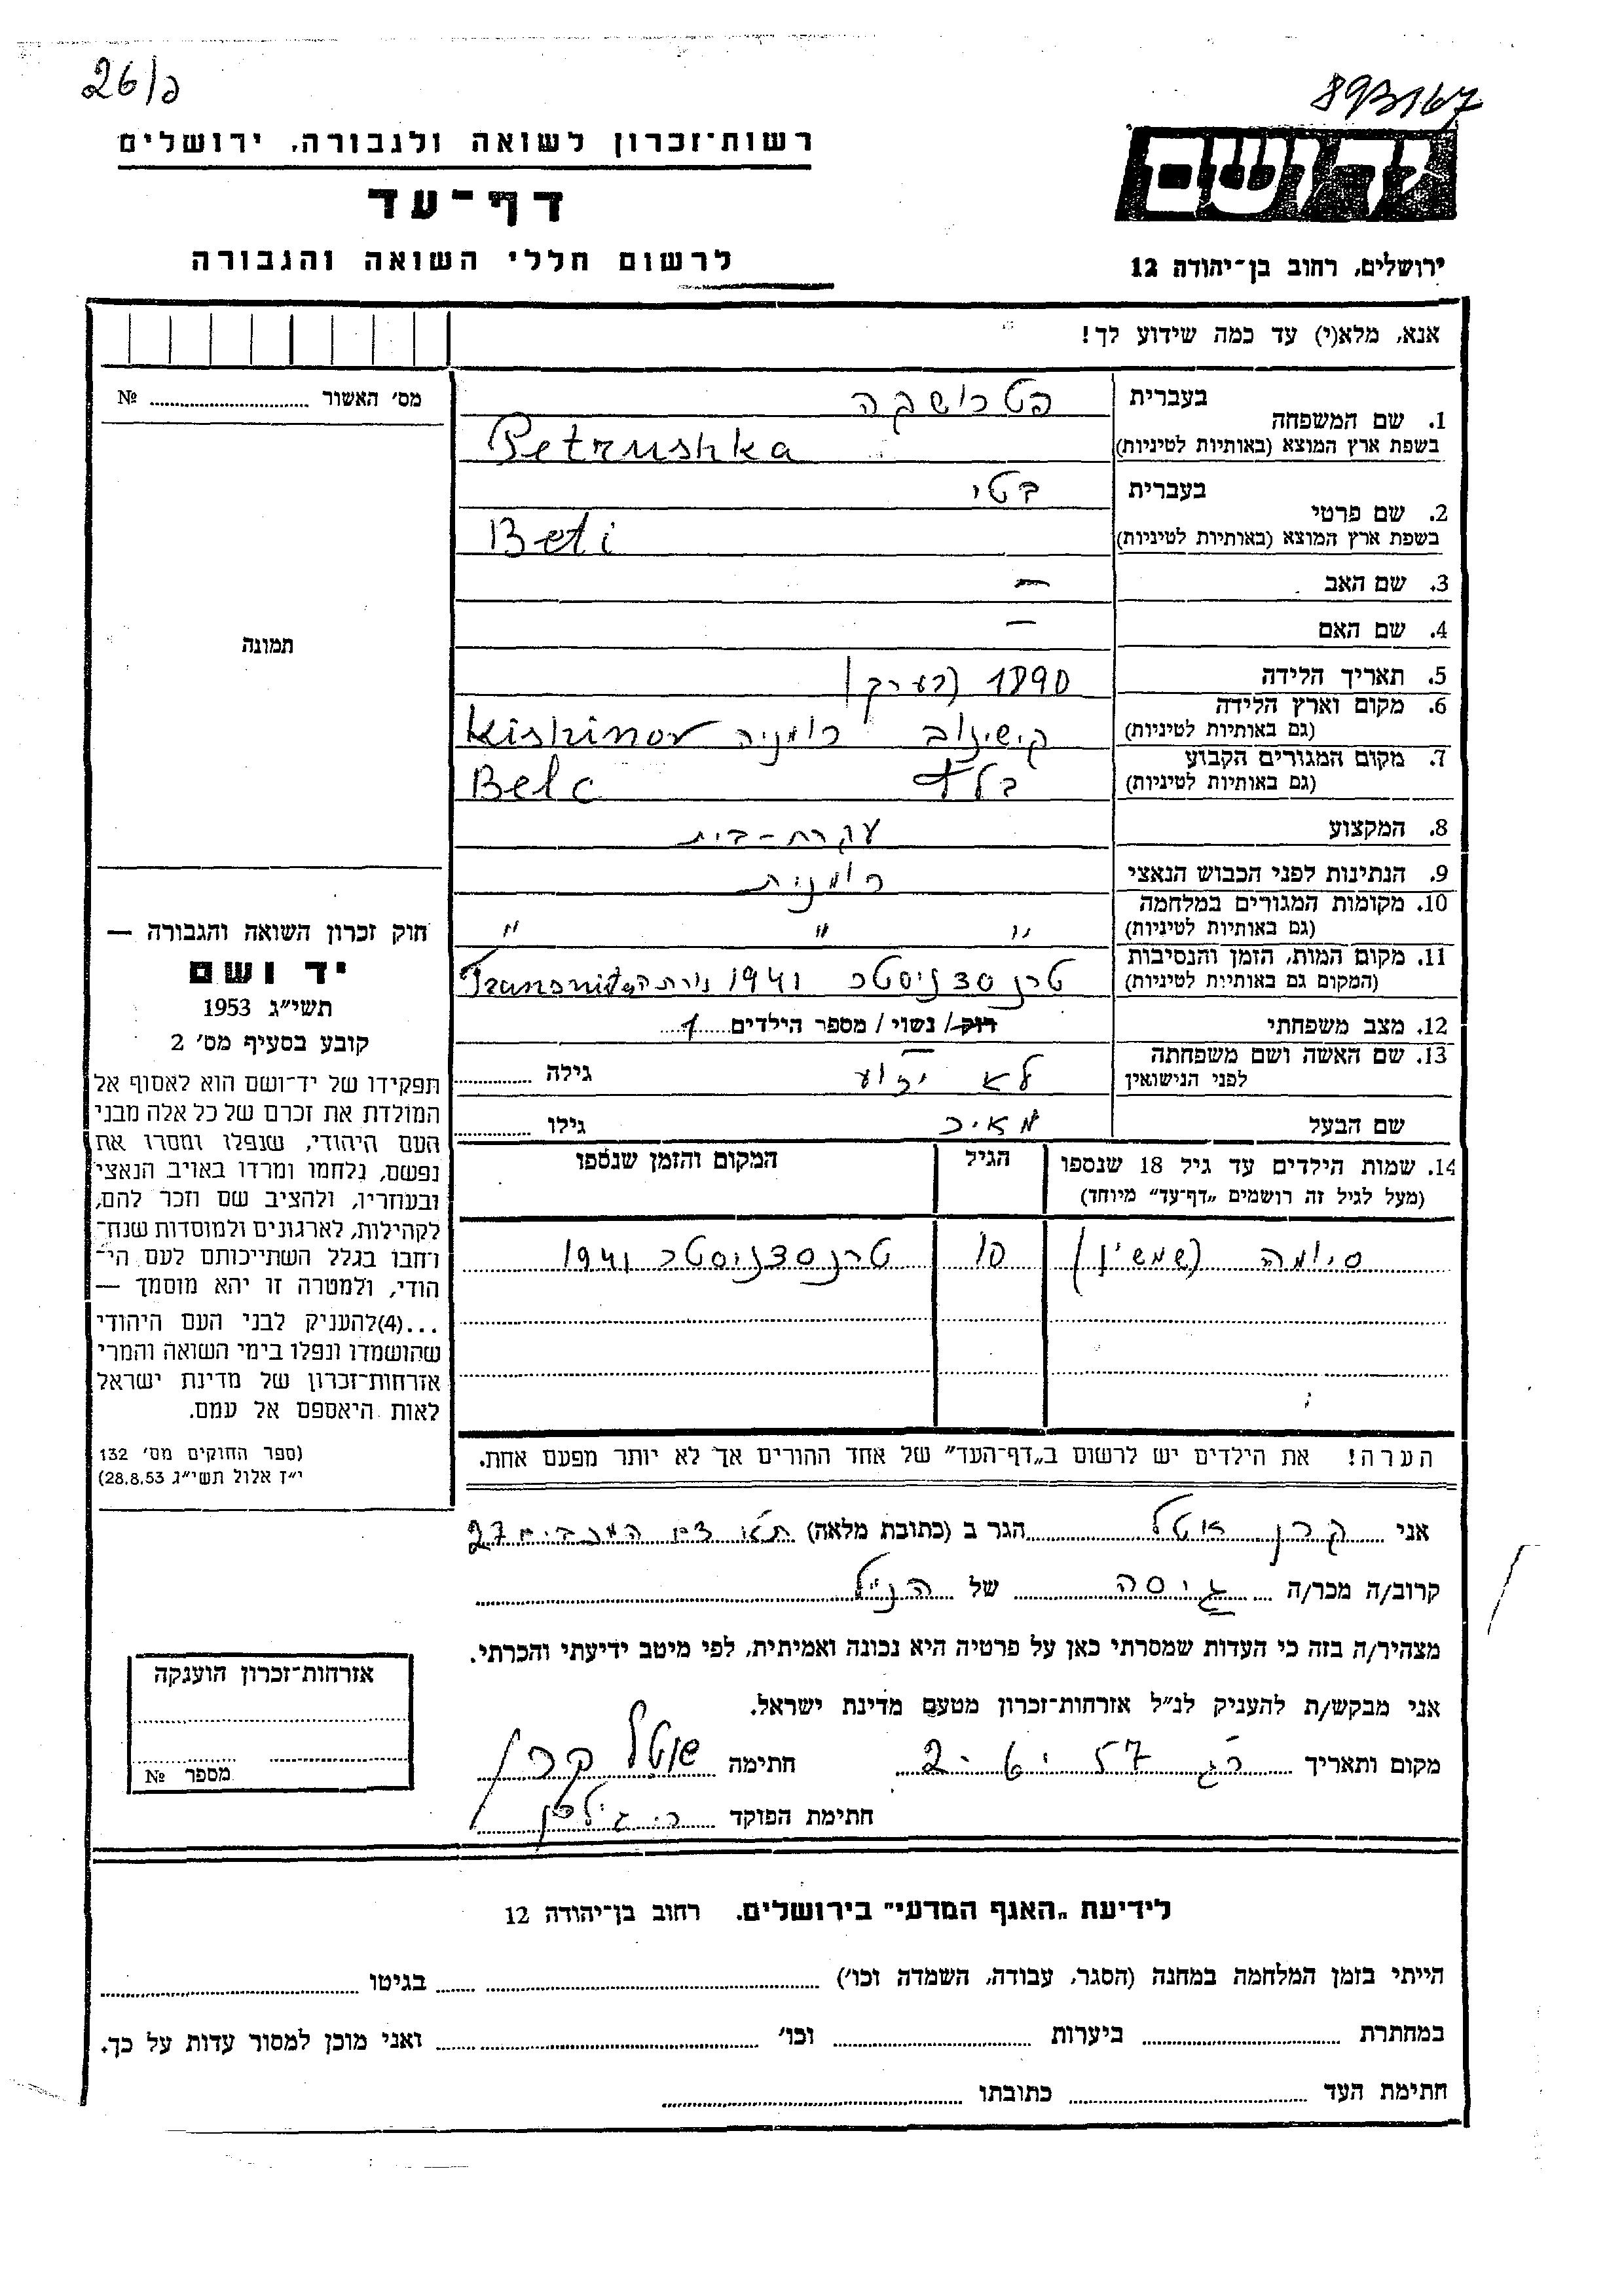 26/פ
893167
רשות־זכרון לשואה ולגבורה, ירושלים
דף־עד
לרשום חללי השואה והגבורה
יד ושם
ירושלים, רחוב בן־יהודה 12
אנא, מלא(י) עד כמה שידוע לך!
מס׳ האשור № 
תמונה
חוק זכרון השואה והגבורה —
יד ושם
תשי״ג 1953
קובע בסעיף מס׳ 2
תפקידו של יד־ושם הוא לאסוף אל
המולדת את זכרם של כל אלה מבני
העם היהודי, שנפלו ומסרו את
נפשם, נלחמו ומרדו באויב הנאצי
ובעוזריו, ולהציב שם וזכר להם,
לקהילות, לארגונים ולמוסדות שנח־
רחבו בגלל השתייכותם לעם הי־
הודי, ולמטרה זו יהא מוסמך —
...(4)להעניק לבני העם היהודי
שהושמדו ונפלו בימי השואה והמרי
אזרחות־זכרון של מדינת ישראל
לאות היאספם אל עמם.
(ספר החוקים מס׳ 132
י״ז אלול תשי״ג 28.8.53)
1. שם המשפחה
בעברית פטרושקה
בשפת ארץ המוצא (באותיות לטיניות) Petrushka
2. שם פרטי
בעברית בטי
בשפת ארץ המוצא (באותיות לטיניות) Beti
3. שם האב —
4. שם האם —
5. תאריך הלידה 1890 (בערך)
6. מקום וארץ הלידה (גם באותיות לטיניות) קישינוב רומניה Kishinov
7. מקום המגורים הקבוע (גם באותיות לטיניות) בלץ Belc
8. המקצוע עקרת-בית
9. הנתינות לפני הכבוש הנאצי רומנית
10. מקומות המגורים במלחמה (גם באותיות לטיניות) ״ ״ ״
11. מקום המות, הזמן והנסיבות (המקום גם באותיות לטיניות) טרנסדניסטר 1941
12. מצב משפחתי רוק/ נשוי/ מספר הילדים 1
13. שם האשה ושם משפחתה לפני הנישואין לא ידוע גילה
שם הבעל מאיר גילו
14. שמות הילדים עד גיל 18 שנספו
(מעל לגיל זה רושמים „דף־עד״ מיוחד)
הגיל
המקום והזמן שנספו
סיומה (שמשון) 10 טרנסדניסטר 1941
הערה! את הילדים יש לרשום ב„דף־העד״ של אחד ההורים אך לא יותר מפעם אחת.
אני קרן אטל הגר ב (כתובת מלאה) 27
קרוב/ה מכר/ה גיסה של הנ״ל
מצהיר/ה בזה כי העדות שמסרתי כאן על פרטיה היא נכונה ואמיתית, לפי מיטב ידיעתי והכרתי.
אני מבקש/ת להעניק לנ״ל אזרחות־זכרון מטעם מדינת ישראל.
מקום ותאריך רג 57 חתימה אטל קרן
חתימת הפוקד
אזרחות־זכרון הוענקה
מספר №
לידיעת „האגף המדעי״ בירושלים. רחוב בן־יהודה 12
הייתי בזמן המלחמה במחנה (הסגר, עבודה, השמדה וכו׳) בגיטו
במחתרת ביערות וכו׳ ואני מוכן למסור עדות על כך.
חתימת העד כתובתו